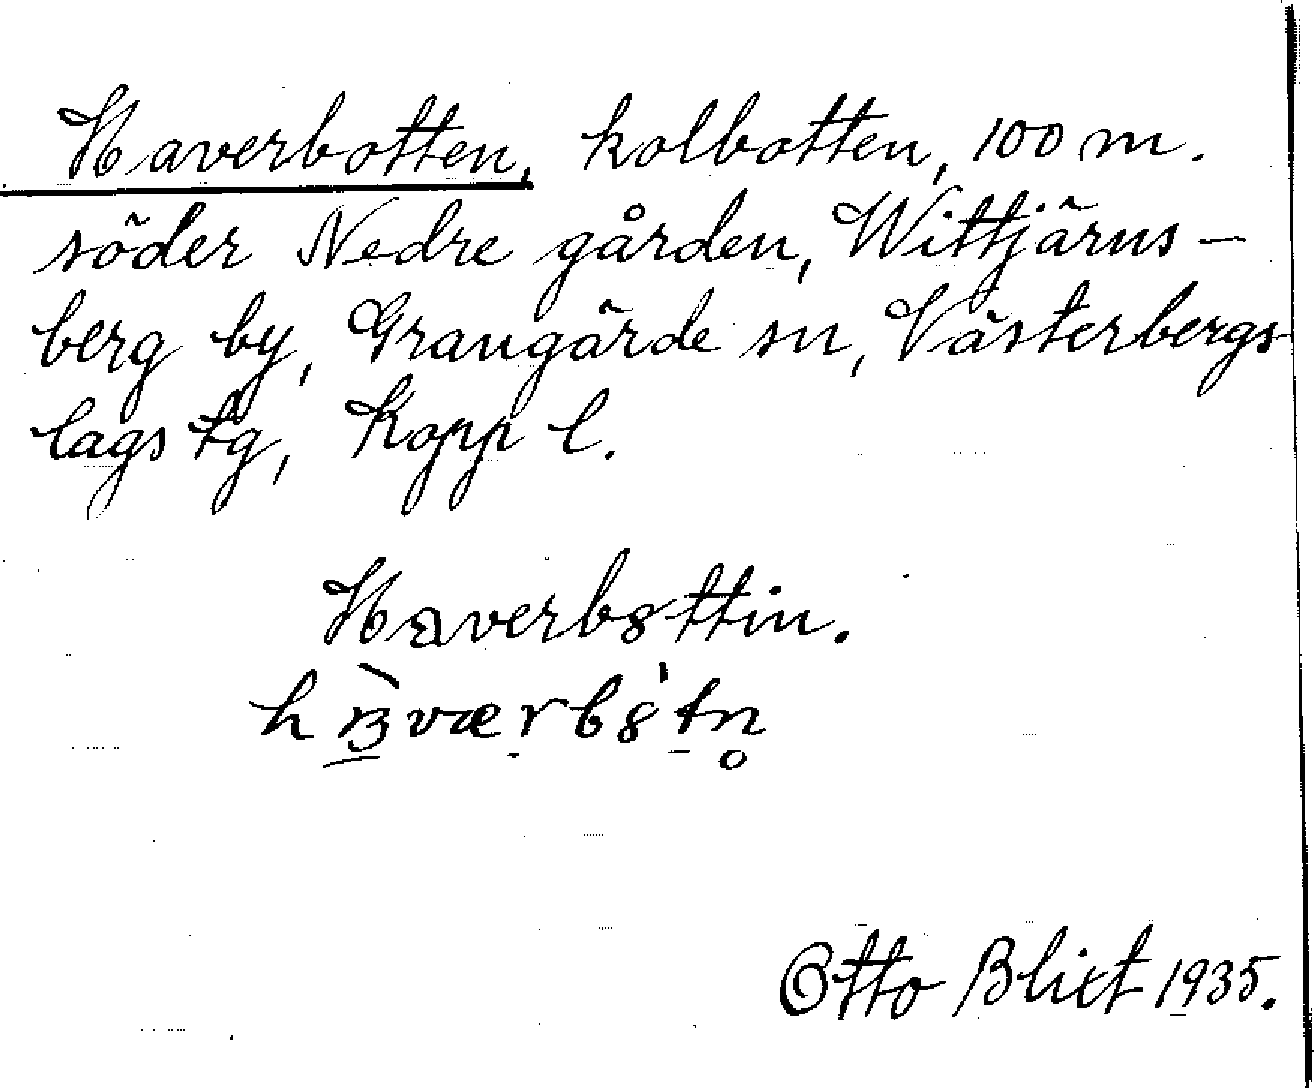 Haverbotten, kolbotten, 100 m.
söder Nedre gården, Wittjärns-
berg by, Grangärde sn, Västerbergs-
lags tg, Kopp l.
Haverbȣttin.
Otto Blixt 1935.